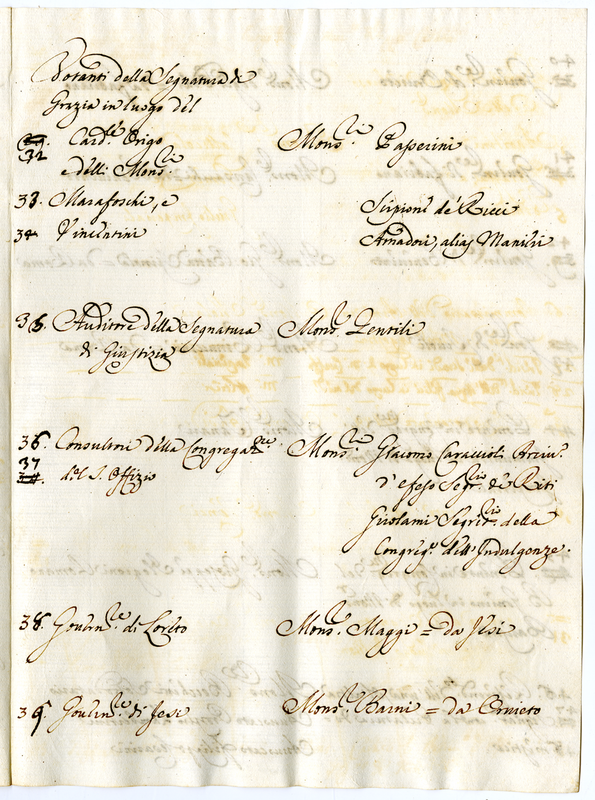 Votanti della Segnatura di
Grazia in luogo del
32 Card.le Origo Mons.ri Paperini
e delli Mons.ri
33. Marafoschi, e Scipioni de' Ricci
34 Vincentini Amadori, alias Manilii
35. Auditore della Segnatura Mons.r Gentili
di Giustizia
36. Consultori della Congregaz.ne Mons.ri Giacomo Caraccioli Arciv.
37 del S. Offizio d'Efeso Segr.rio de Riti
Girolami Segrit.rio della
Congreg.e dell'Indulgenze.
38. Govern.re di Loreto Mons.r Maggi = da Jesi
39. Govern.re di Jesi Mons.r Barni = da Orvieto